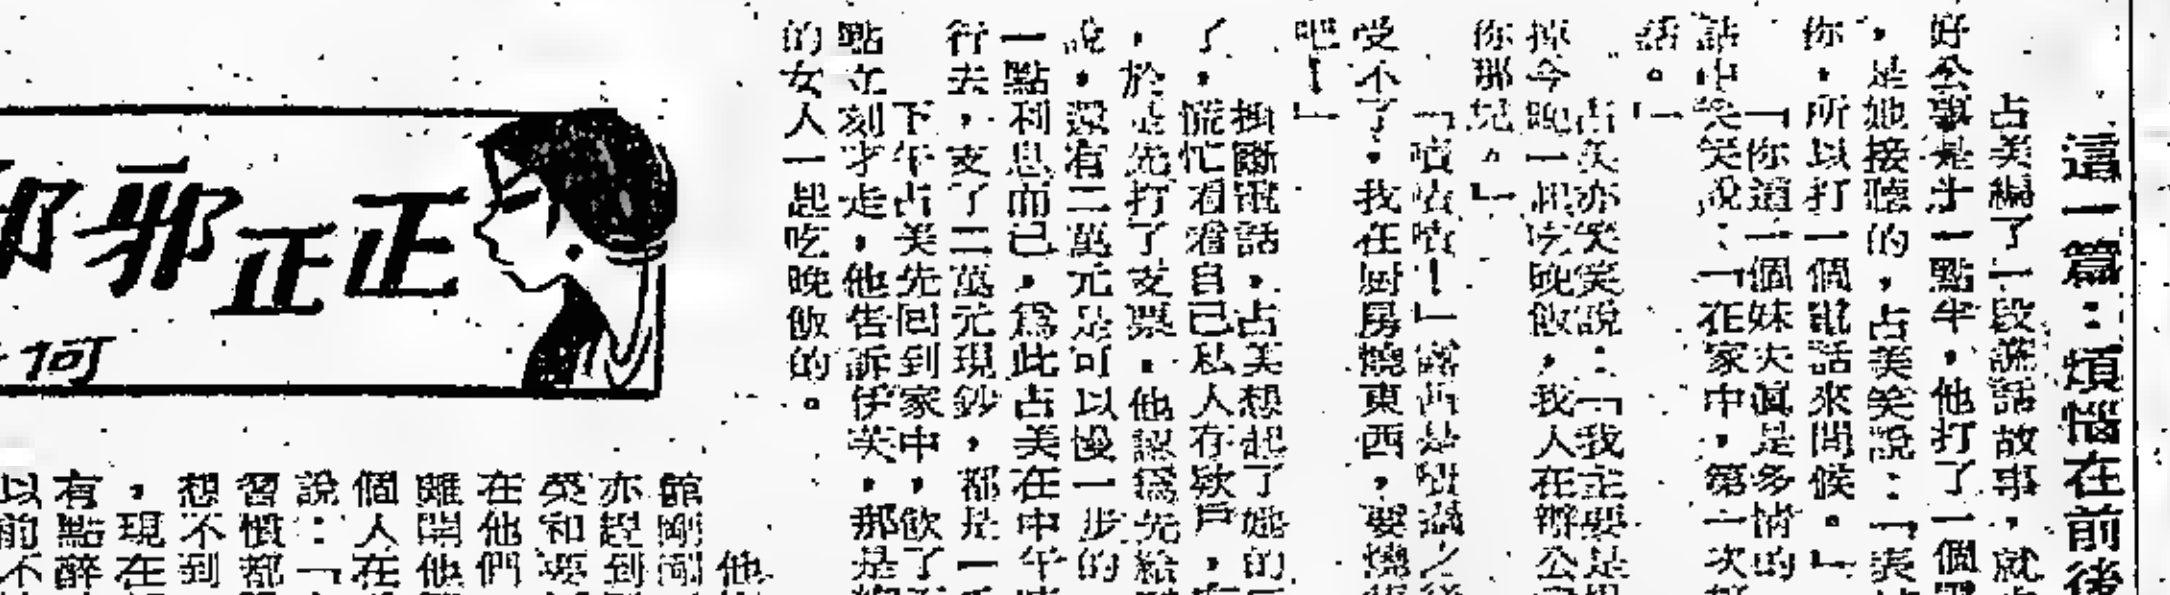 這一篇：煩惱在前後
占美編了一段謊話故事，就
好公事是十一點半，他打了一個
，是她接聽的，占美笑說：「表
你，所以打一個電話來問候。」
「你這一個妹夫眞是多情的
話中笑笑說：「在家中，第一次
話。」
占美亦笑笑說：「我主要是
掉今晚一起吃晚飯，我人在辦公
你那兒。」
「嘖嘖嘖！」
受不了，我在厨房燒東西，要燒
吧！」
掛斷電話，占美想起了她的
了，慌忙看看自己私人存欵戶，
，於是先打了支票，他認爲先給
說，還有二萬元是可以慢一步的
一點利息而已，爲此占美在中午
行去，支了二萬元現鈔，都是一
下午占美先回到家中，飲了
點立刻才走，他告訴伊芙，那是
的女人一起吃晚飯的。
正正邪邪
何
他
館剛剛
亦趕到
英和
在他們
離開他
個人在
說：「
習慣都
想不到
，現在
有點醉
以前不